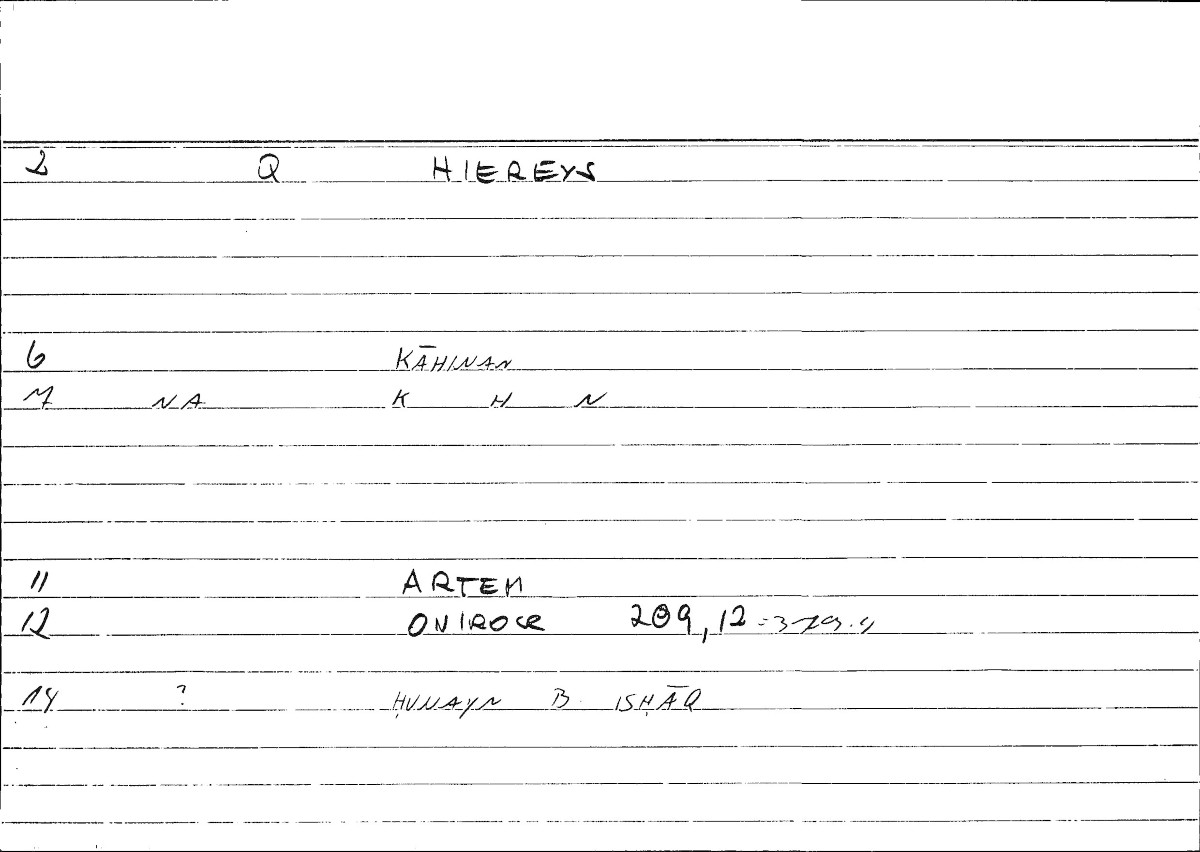 2 Q HIEREYS
6 KĀHINAN
7 NA K H N
11 ARTEM
12 ONIROCR 209,12
14 ? ḤUNAYN B. ISḤĀQ